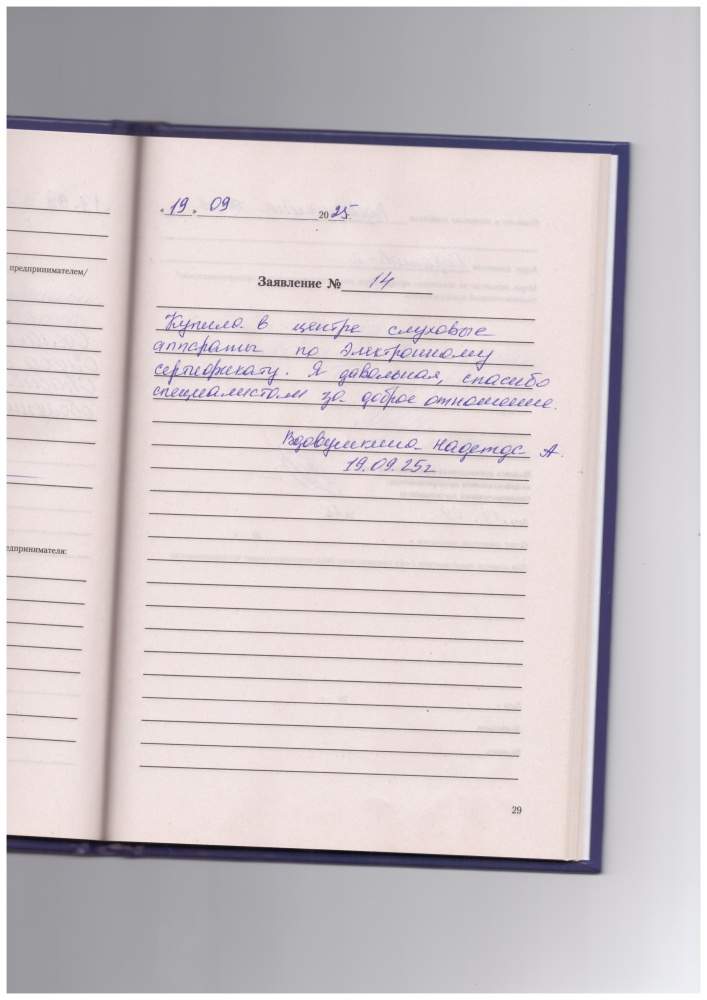 « 19 » 09 2025 г.
предпринимателем/
Заявление № 14
Купила в центре слуховые
аппараты по электронному
сертификату. Я давольная, спасибо
специалистам за доброе отношение.
Вдовушкина Надежда А.
19.09.25г
едпринимателя:
29